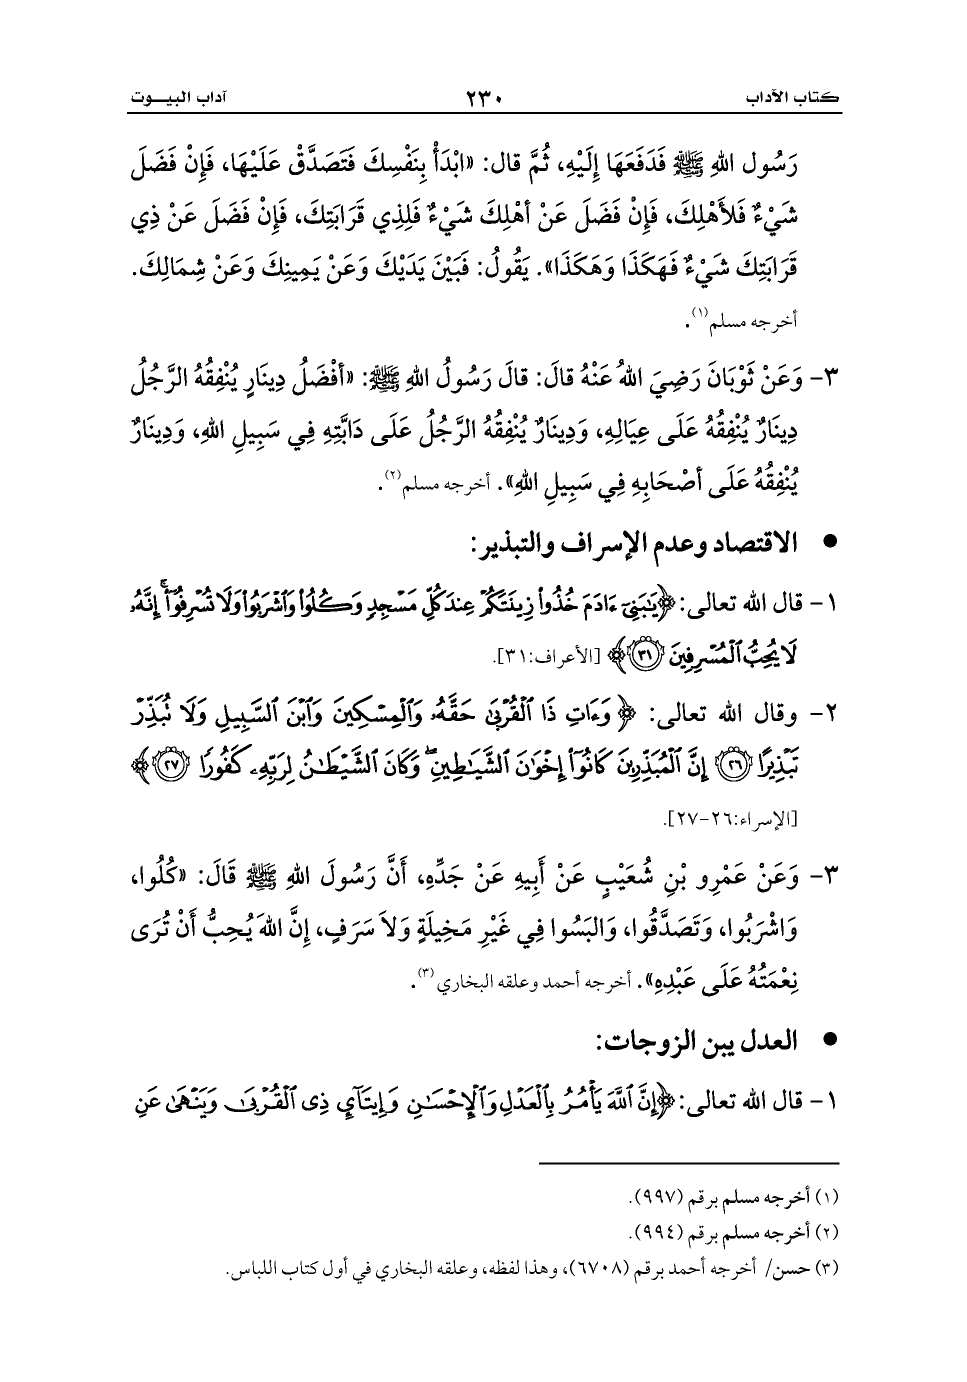 كتاب الآداب ٢٣٠ آداب البيـــوت
رَسُول اللهِ ﷺ فَدَفَعَهَا إِلَيْهِ، ثُمَّ قال: «ابْدَأْ بِنَفْسِكَ فَتَصَدَّقْ عَلَيْهَا، فَإِنْ فَضَلَ
شَيْءٌ فَلأَهْلِكَ، فَإِنْ فَضَلَ عَنْ أهْلِكَ شَيْءٌ فَلِذِي قَرَابَتِكَ، فَإِنْ فَضَلَ عَنْ ذِي
قَرَابَتِكَ شَيْءٌ فَهَكَذَا وَهَكَذَا». يَقُولُ: فَبَيْنَ يَدَيْكَ وَعَنْ يَمِينِكَ وَعَنْ شِمَالِكَ.
أخرجه مسلم(١).
٣- وَعَنْ ثَوْبَانَ رَضِيَ اللهُ عَنْهُ قالَ: قالَ رَسُولُ اللهِ ﷺ: «أفْضَلُ دِينَارٍ يُنْفِقُهُ الرَّجُلُ
دِينَارٌ يُنْفِقُهُ عَلَى عِيَالِهِ، وَدِينَارٌ يُنْفِقُهُ الرَّجُلُ عَلَى دَابَّتِهِ فِي سَبِيلِ اللهِ، وَدِينَارٌ
يُنْفِقُهُ عَلَى أصْحَابِهِ فِي سَبِيلِ اللهِ». أخرجه مسلم(٢).
● الاقتصاد وعدم الإسراف والتبذير:
١- قال الله تعالى: ﴿يَٰبَنِيٓ ءَادَمَ خُذُواْ زِينَتَكُمۡ عِندَ كُلِّ مَسۡجِدٖ وَكُلُواْ وَٱشۡرَبُواْ وَلَا تُسۡرِفُوٓاْۚ إِنَّهُۥ
لَا يُحِبُّ ٱلۡمُسۡرِفِينَ ٣١﴾ [الأعراف:٣١].
٢- وقال الله تعالى: ﴿وَءَاتِ ذَا ٱلۡقُرۡبَىٰ حَقَّهُۥ وَٱلۡمِسۡكِينَ وَٱبۡنَ ٱلسَّبِيلِ وَلَا تُبَذِّرۡ
تَبۡذِيرًا ٢٦ إِنَّ ٱلۡمُبَذِّرِينَ كَانُوٓاْ إِخۡوَٰنَ ٱلشَّيَٰطِينِۖ وَكَانَ ٱلشَّيۡطَٰنُ لِرَبِّهِۦ كَفُورٗا ٢٧﴾
[الإسراء:٢٦-٢٧].
٣- وَعَنْ عَمْرِو بْنِ شُعَيْبٍ عَنْ أَبِيهِ عَنْ جَدِّهِ، أَنَّ رَسُولَ اللهِ ﷺ قَالَ: «كُلُوا،
وَاشْرَبُوا، وَتَصَدَّقُوا، وَالبَسُوا فِي غَيْرِ مَخِيلَةٍ وَلاَ سَرَفٍ، إِنَّ اللهَ يُحِبُّ أَنْ تُرَى
نِعْمَتُهُ عَلَى عَبْدِهِ». أخرجه أحمد وعلقه البخاري(٣).
● العدل بين الزوجات:
١- قال الله تعالى: ﴿إِنَّ ٱللَّهَ يَأۡمُرُ بِٱلۡعَدۡلِ وَٱلۡإِحۡسَٰنِ وَإِيتَآيِٕ ذِي ٱلۡقُرۡبَىٰ وَيَنۡهَىٰ عَنِ
(١) أخرجه مسلم برقم (٩٩٧).
(٢) أخرجه مسلم برقم (٩٩٤).
(٣) حسن/ أخرجه أحمد برقم (٦٧٠٨)، وهذا لفظه، وعلقه البخاري في أول كتاب اللباس.